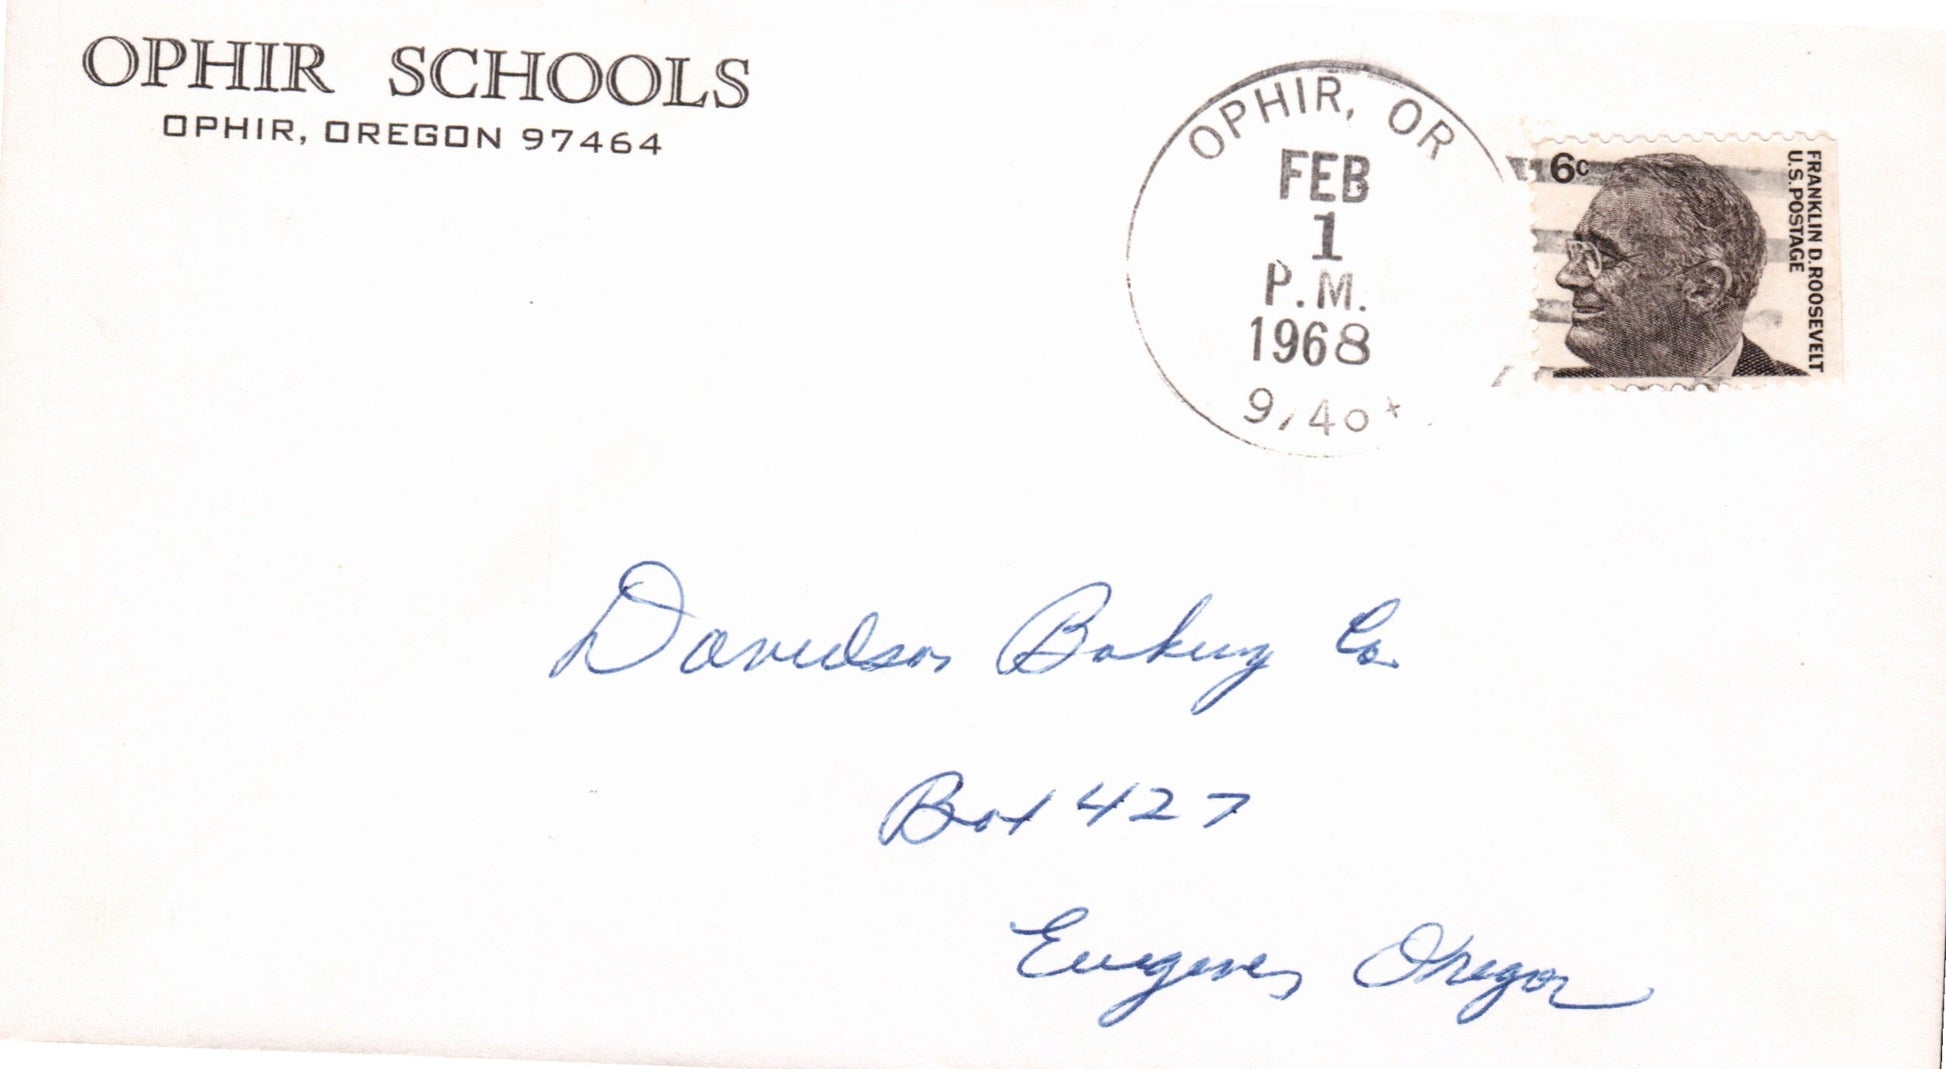 OPHIR SCHOOLS
OPHIR, OREGON 97464
OPHIR, OR
FEB
1
P.M.
1968
6c
FRANKLIN D. ROOSEVELT
U.S. POSTAGE
Davidson Baking Co.
Box 427
Eugene, Oregon